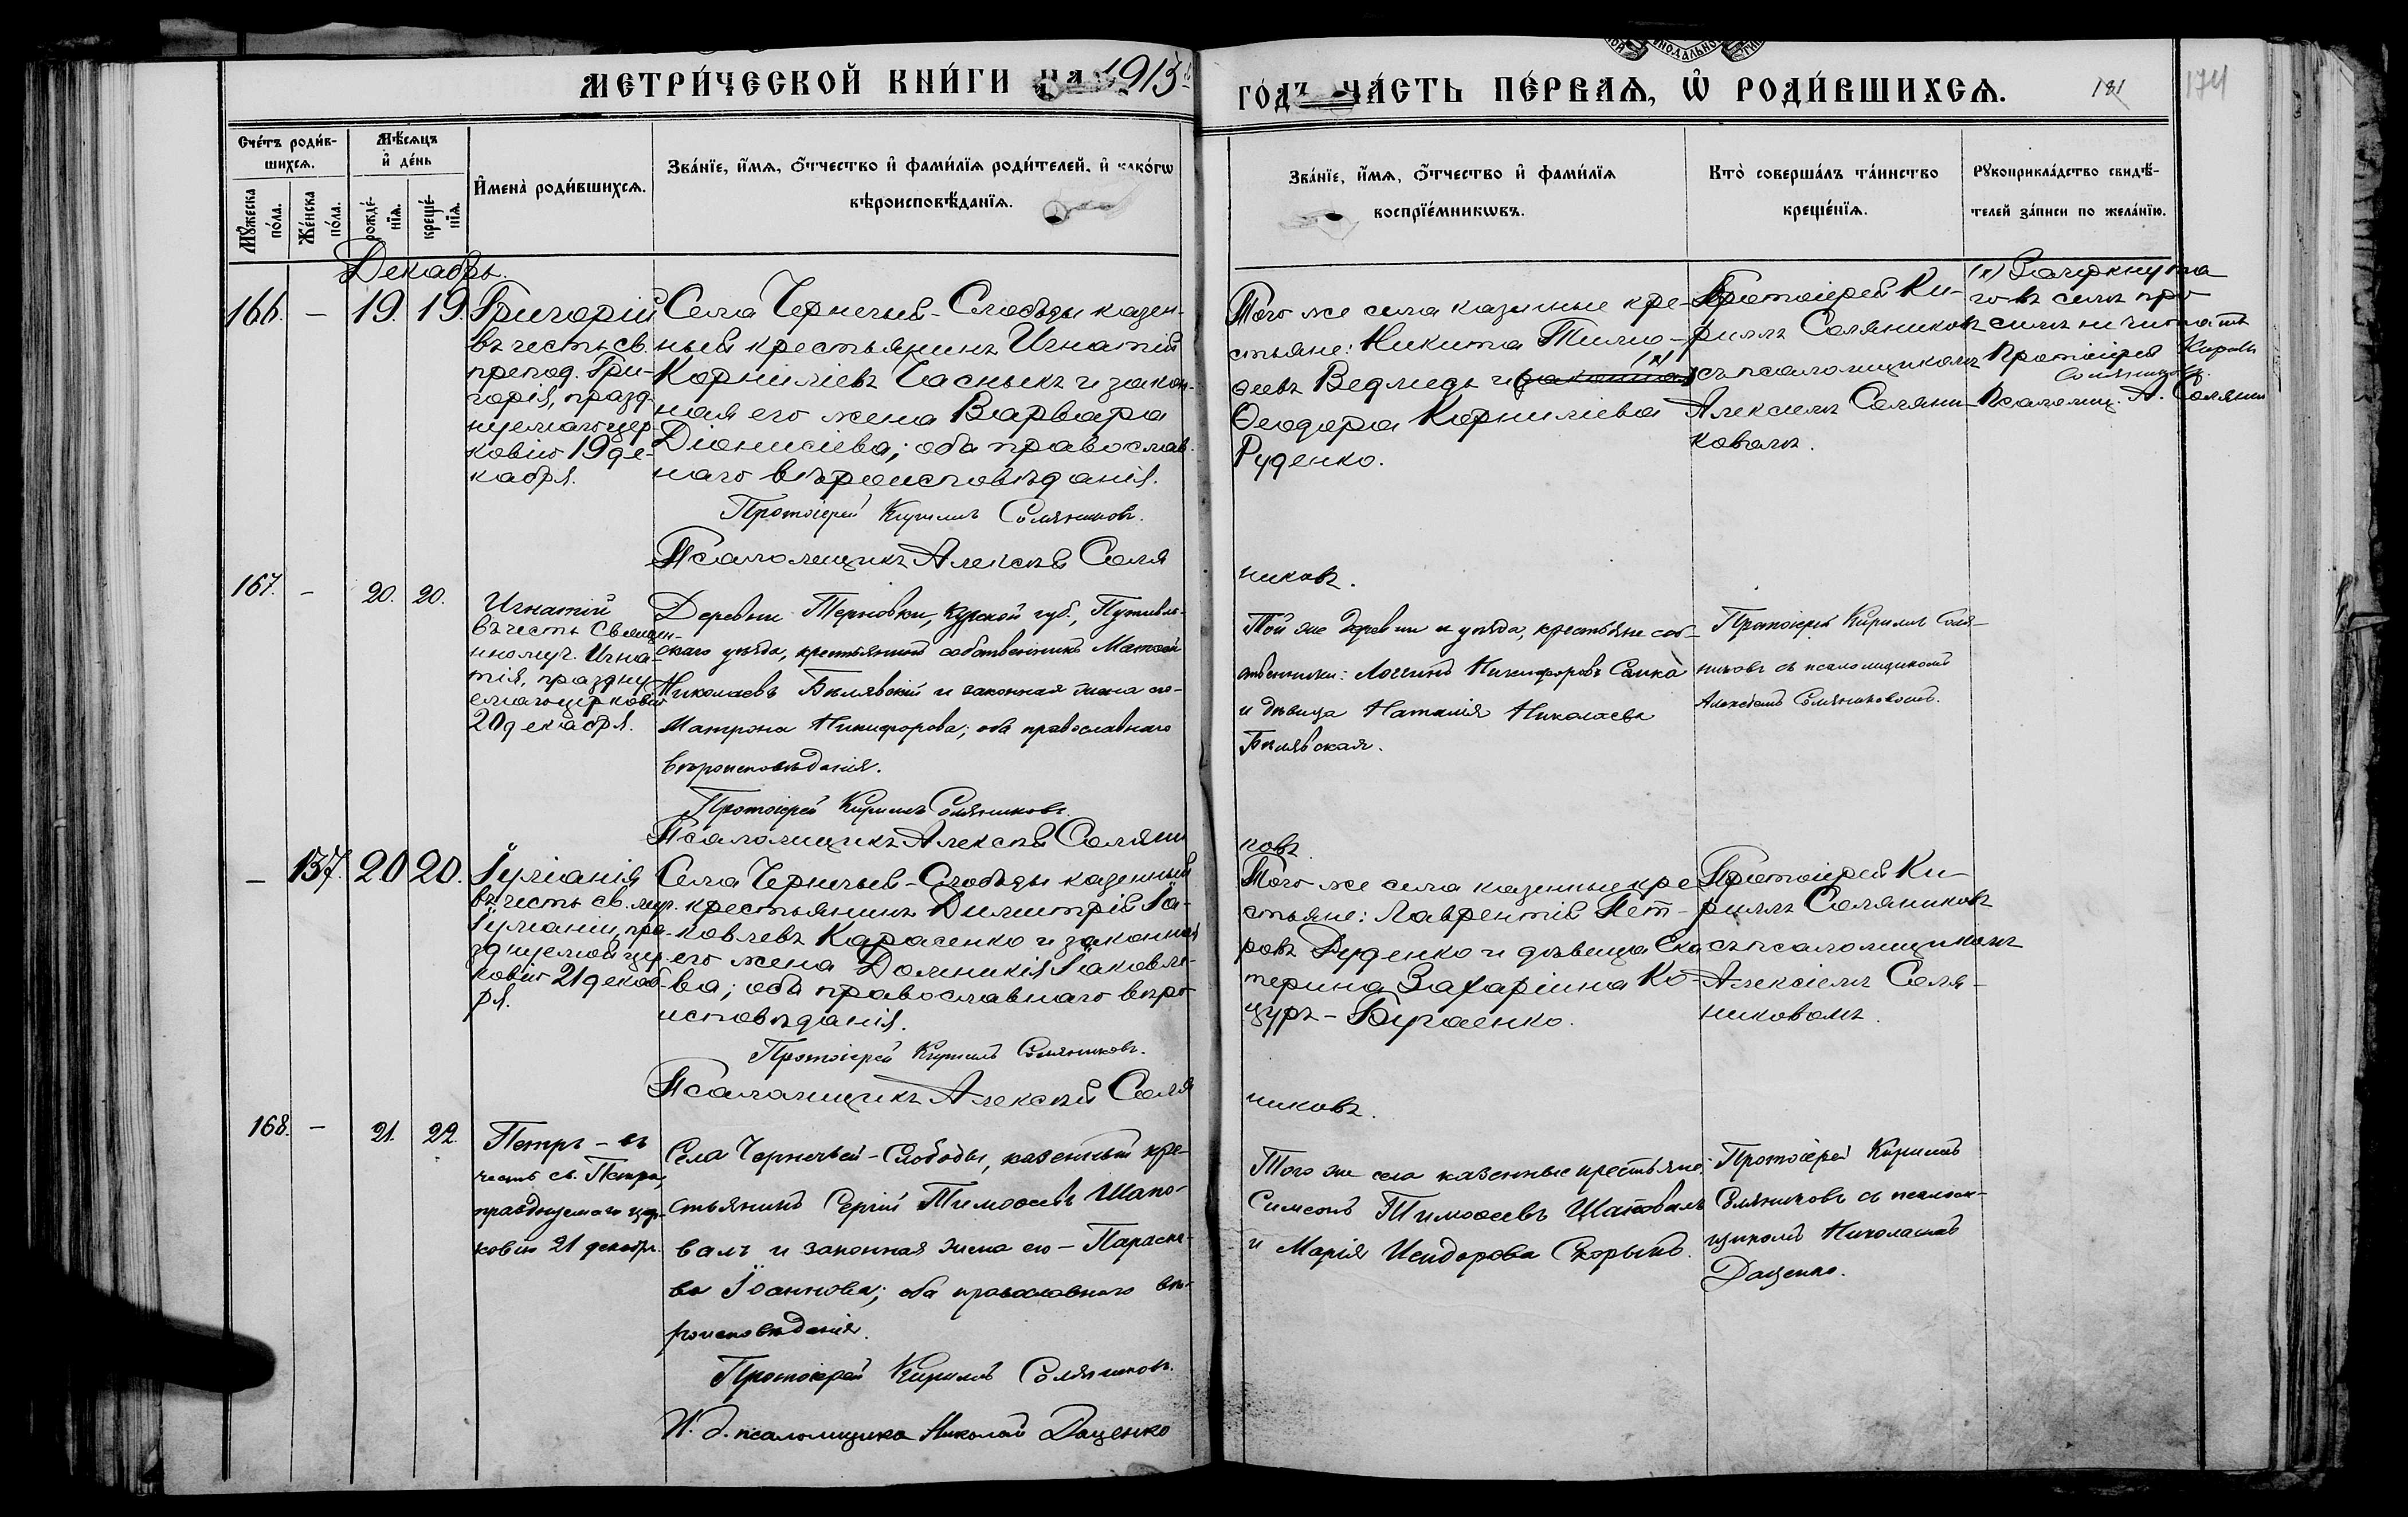 МЕТРИ́ЧЕСКОЙ КНИ́ГИ НА 1913
ГО́ДЪ ЧА́СТЬ ПЕ́РВАѦ, Ѡ҆ РОДИ́ВШИХСѦ.
181
174
Сче́тъ роди́в-
шихсѧ.
Мѣ́сѧцъ
и҆ де́нь
И҆мена̀ роди́вшихсѧ.
Зва́нїе, и҆́мѧ, ѻ҆́тчество и҆ фами́лїѧ роди́телей, и҆ како́гѡ
вѣроисповѣ́данїѧ.
Мꙋ́жеска
по́ла.
Же́нска
по́ла.
рожде́-
нїѧ.
креще́-
нїѧ.
Зва́нїе, и҆́мѧ, ѻ҆́тчество и҆ фами́лїѧ
воспрїе́мникѡвъ.
Кто̀ соверша́лъ та́инство
креще́нїѧ.
Рꙋкоприкла́дство свидѣ́-
телей за́писи по жела́нїю.
Декабрь.
166. – 19. 19.
Григорій
въ честь св.
препод. Гри-
горія, празд-
нуемаго цер-
ковію 19 де-
кабря.
Села Чернечьей-Слободы казен-
ный крестьянинъ Игнатій
Корниліевъ Часныкъ и закон-
ная его жена Варвара
Діонисіева; оба православ-
наго вѣроисповѣданія.
Протоіерей Кириллъ Соляниковъ.
Псаломщикъ Алексѣй Соля
никовъ.
Того же села казенные кре-
стьяне: Никита Тимо-
ѳеевъ Ведмедь и (законная) (х)
Ѳеодора Корниліева
Руденко.
Протоіерей Ки-
риллъ Соляниковъ
съ псаломщикомъ
Алексіемъ Соляни-
ковымъ.
(х) Зачеркнута
го въ семъ про
симъ не читать
Протоіерей Кирилъ
Соляниковъ.
Псаломщ. А. Соляник
167. – 20. 20.
Игнатій
въ честь Священ-
номуч. Игна-
тія, праздну-
емаго церковію
20 декабря.
Деревни Терновки, Курской губ., Путивль-
скаго уѣзда, крестьянинъ собственникъ Матѳей
Николаевъ Билявскій и законная жена его-
Матрона Никифорова; оба православнаго
вѣроисповѣданія.
Протоіерей Кириллъ Соляниковъ.
Псаломщикъ Алексѣй Соляни
ковъ.
Той же деревни и уѣзда, крестьяне соб-
ственники: Логгинъ Никифоровъ Самка
и дѣвица Наталія Николаева
Билявская.
Протоіерей Кириллъ Соля-
никовъ съ псаломщикомъ
Алексѣемъ Соляниковымъ.
– 137. 20 20.
Іуліанія
въ честь св. муч.
Іуліаніи, пра-
зднуемой цер-
ковію 21 декаб-
ря.
Села Чернечьей-Слободы казенный
крестьянинъ Димитрій Іа-
ковлевъ Карасенко и законная
его жена Домникія Іаковле-
ва; оба православнаго вѣро
исповѣданія.
Протоіерей Кириллъ Соляниковъ.
Псаломщикъ Алексѣй Соля
никовъ.
Того же села казенные кре
стьяне: Лаврентій Пет-
ровъ Руденко и дѣвица Ека
терина Захаріина Ко-
цуръ-Бугаенко.
Протоіерей Ки-
риллъ Соляниковъ
съ псаломщикомъ
Алексіемъ Соля-
никовымъ.
168. – 21. 22.
Петръ – въ
честь св. Петра,
празднуемаго цер-
ковію 21 декабря.
Села Чернечьей-Слободы, казенный кре-
стьянинъ Сергій Тимоѳеевъ Шапо-
валъ и законная жена его – Параске-
ва Іоаннова; оба православнаго вѣ-
роисповѣданія.
Протоіерей Кириллъ Соляниковъ.
И. д. псаломщика Николай Даценко
Того же села казенные крестьяне:
Симеонъ Тимоѳеевъ Шаповалъ
и Марія Исидорова Скорыкъ.
Протоіерей Кириллъ
Соляниковъ съ псалом-
щикомъ Николаемъ
Даценко.